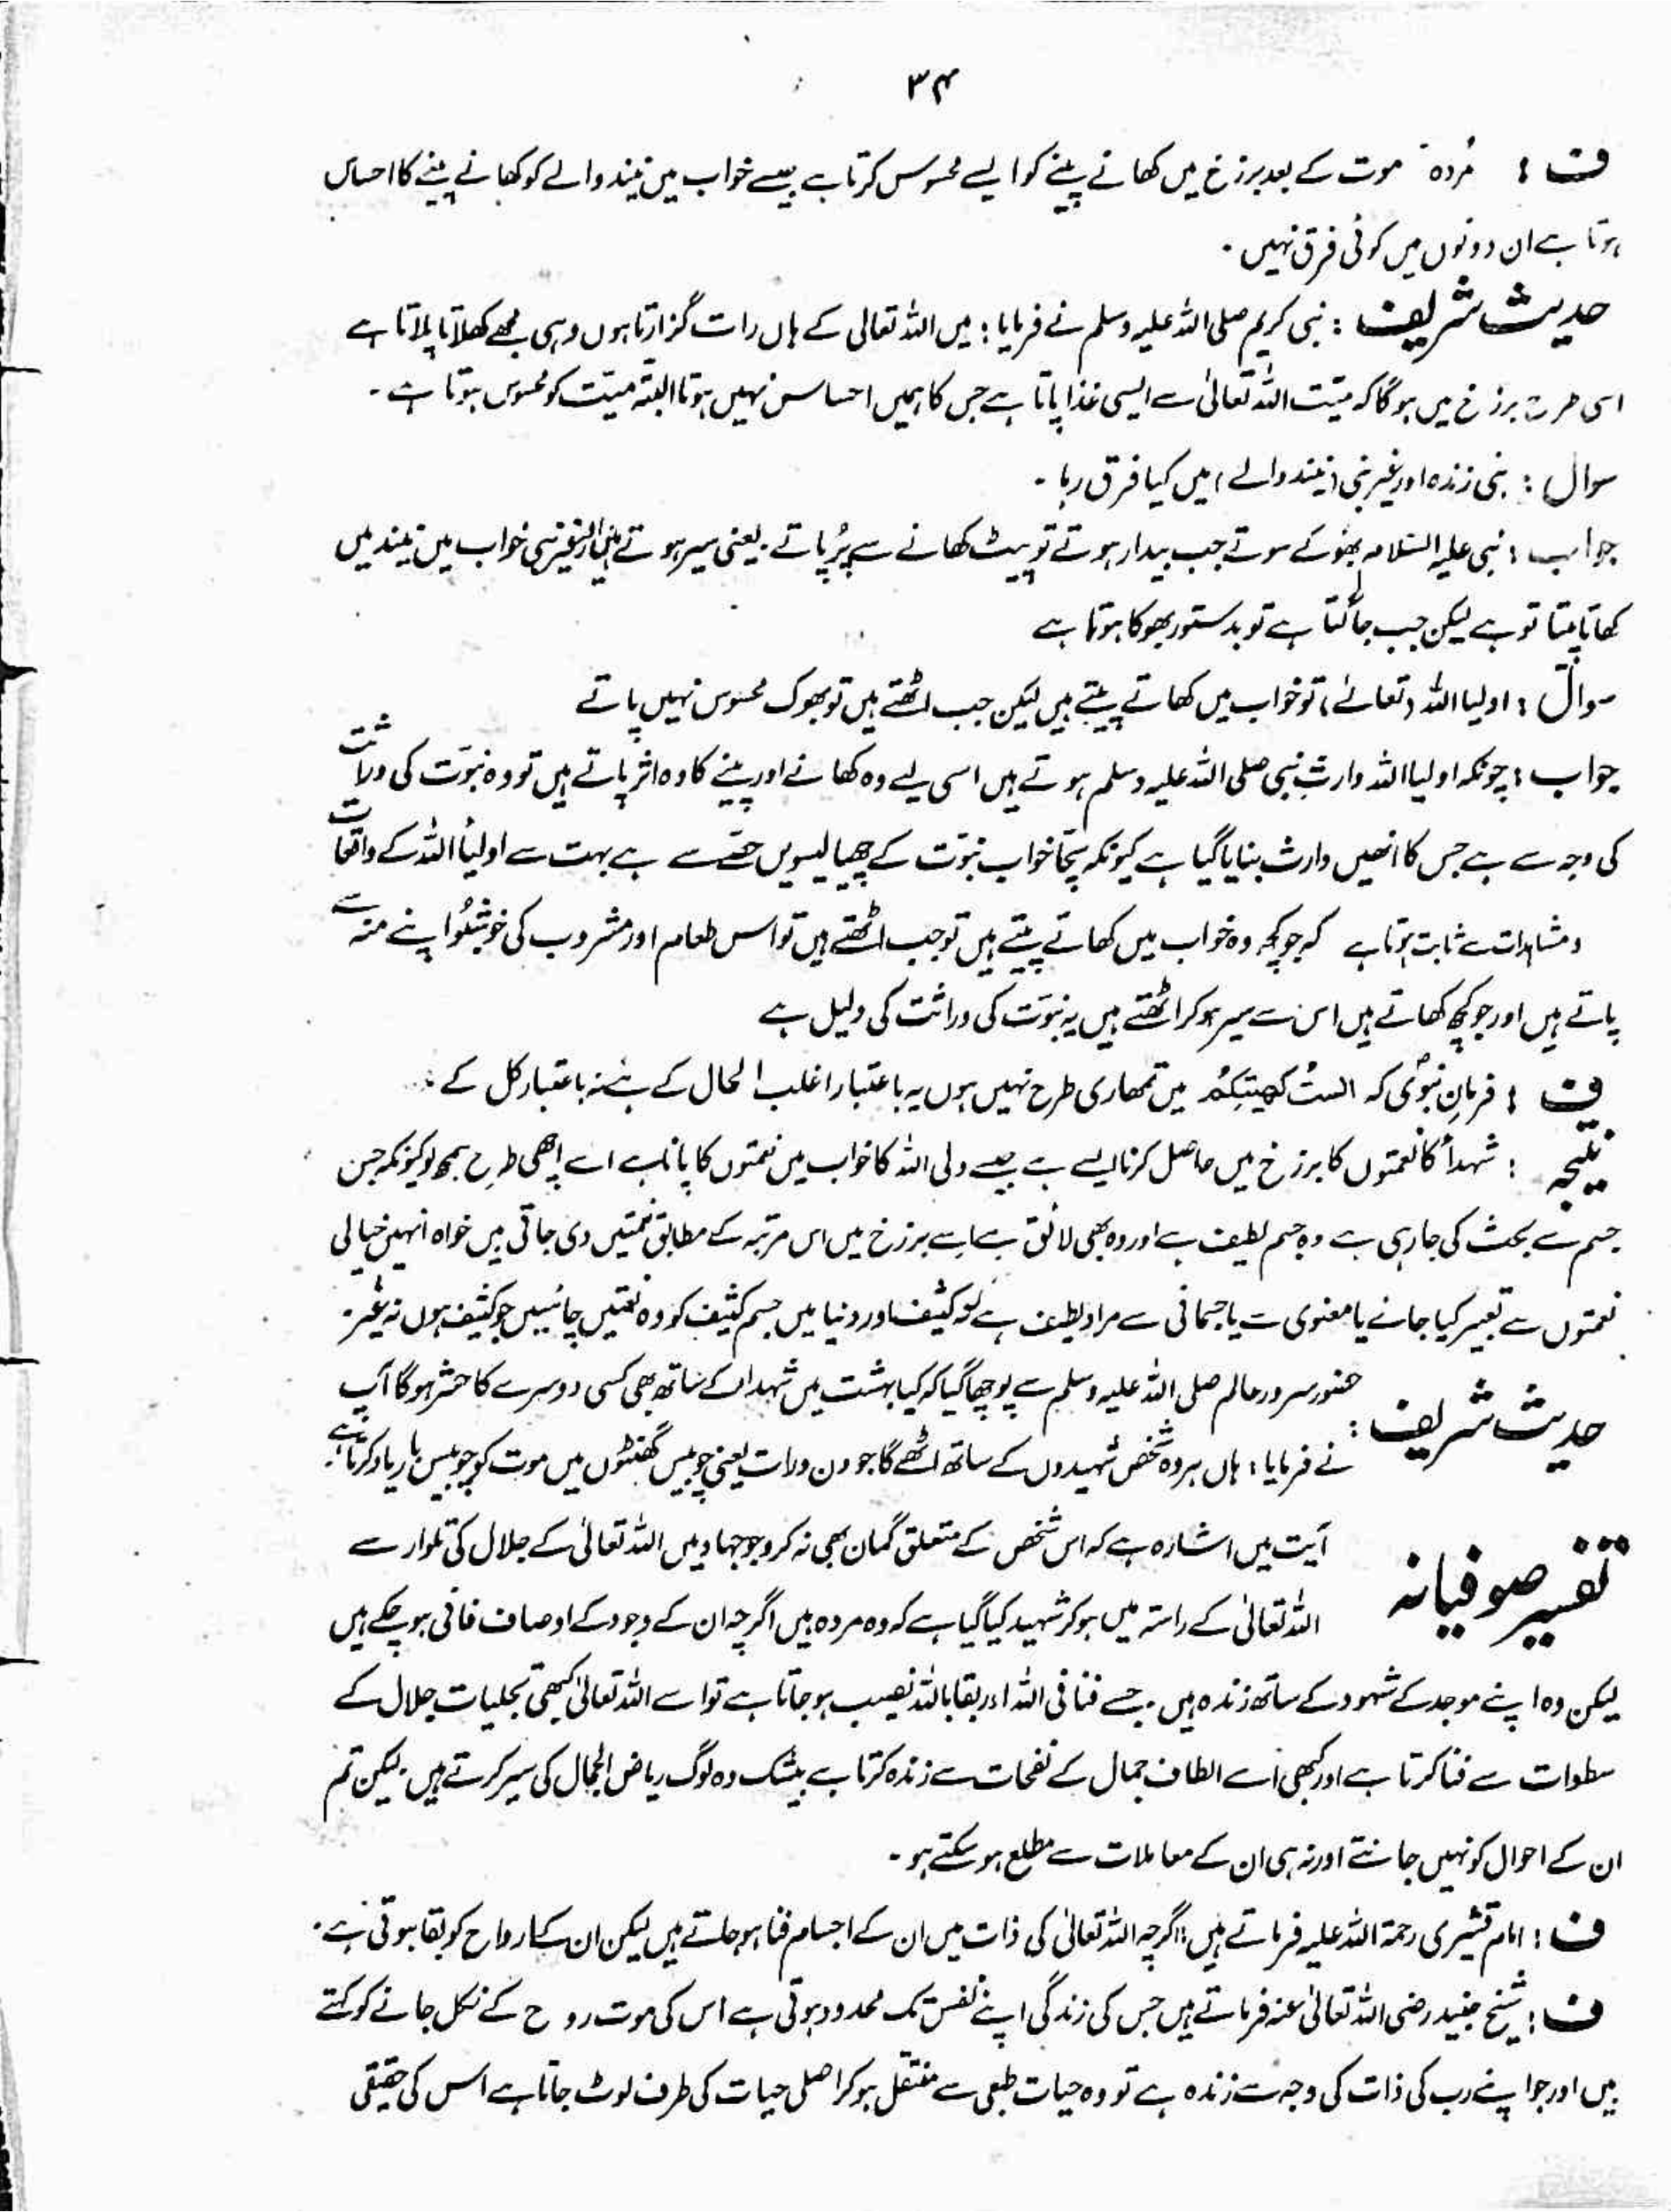 ۳۴
ف : مُردہ موت کے بعد برزخ میں کھانے پینے کو ایسے محسوس کرتا ہے جیسے خواب میں نیند والے کو کھانے پینے کا احساس
ہوتا ہے ان دونوں میں کوئی فرق نہیں ۔
حدیث شریف : نبی کریم صلی اللہ علیہ وسلم نے فرمایا : میں اللہ تعالی کے ہاں رات گزارتا ہوں وہی مجھے کھلاتا پلاتا ہے
اسی طرح برزخ میں ہوگا کہ میّت اللہ تعالیٰ سے ایسی غذا پاتا ہے جس کا ہمیں احساس نہیں ہوتا البتہ میّت کو محسوس ہوتا ہے ۔
سوال : نبی زندہ اور غیر نبی (نیند والے) میں کیا فرق رہا ۔
جواب : نبی علیہ السّلام بھوکے سوتے جب بیدار ہوتے تو پیٹ کھانے سے پُر پاتے ۔ یعنی سیر ہوتے ہیں اور غیر نبی خواب میں نیند میں
کھاتا پیتا تو ہے لیکن جب جاگتا ہے تو بدستور بھوکا ہوتا ہے
سوال : اولیا اللہ (تعالےٰ) تو خواب میں کھاتے پیتے ہیں لیکن جب اٹھتے ہیں تو بھوک محسوس نہیں پاتے
جواب : چونکہ اولیا اللہ وارثِ نبی صلی اللہ علیہ وسلم ہوتے ہیں اسی لیے وہ کھانے اور پینے کا وہ اثر پاتے ہیں تو وہ نبوّت کی وراثت
کی وجہ سے ہے جس کا انھیں وارث بنایا گیا ہے کیونکہ سچّا خواب نبوّت کے چھیالیسویں حصّے سے ہے بہت سے اولیأ اللہ کے واقعات
و مشاہدات سے ثابت ہوتا ہے کہ جو کچھ وہ خواب میں کھاتے پیتے ہیں تو جب اٹھتے ہیں تو اس طعام اور مشروب کی خوشبُو اپنے منہ سے
پاتے ہیں اور جو کچھ کھاتے ہیں اس سے سیر ہوکر اٹھتے ہیں یہ نبوّت کی وراثت کی دلیل ہے
ف : فرمانِ نبویؐ کہ الستُ کھیئتِکُم میں تمھاری طرح نہیں ہوں یہ باعتبار اغلب الحال کے ہے نہ باعتبار کل کے
نتیجہ : شہدأ کا نعمتوں کا برزخ میں حاصل کرنا ایسے ہے جیسے ولی اللہ کا خواب میں نعمتوں کا پانا ہے اسے اچھی طرح سمجھ لو کیونکہ جس
جسم سے بحث کی جارہی ہے وہ جسم لطیف ہے اور وہ بھی لائق ہے اسے برزخ میں اس مرتبہ کے مطابق نعمتیں دی جاتی ہیں خواہ انہیں خیالی
نعمتوں سے تعبیر کیا جائے یا معنوی سے یا جسمانی سے مراد لطیف ہے نہ کہ کثیف اور دنیا میں جسم کثیف کو وہ نعمتیں چاہئیں جو کثیف ہوں نہ غیر ۔
حضور سرورِ عالم صلی اللہ علیہ وسلم سے پوچھا گیا کہ کیا بہشت میں شہداء کے ساتھ بھی کسی دوسرے کا حشر ہوگا آپ
حدیث شریف :
نے فرمایا : ہاں ہر وہ شخص شہیدوں کے ساتھ اٹھے گا جو دن ورات یعنی چوبیس گھنٹوں میں موت کو چوبیس بار یاد کرتا ہے ۔
آیت میں اشارہ ہے کہ اس شخص کے متعلق گمان بھی نہ کرو جو جہاد میں اللہ تعالیٰ کے جلال کی تلوار سے
تفسیر صوفیانہ
اللہ تعالیٰ کے راستہ میں ہوکر شہید کیا گیا ہے کہ وہ مردہ ہیں اگرچہ ان کے وجود کے اوصاف فانی ہوچکے ہیں
لیکن وہ اپنے موجد کے شہود کے ساتھ زندہ ہیں ۔ جسے فنا فی اللہ اور بقا باللہ نصیب ہوجاتا ہے تو اسے اللہ تعالیٰ کبھی تجلیات جلال کے
سطوات سے فنا کرتا ہے اور کبھی اسے الطافِ جمال کے نفحات سے زندہ کرتا ہے بیشک وہ لوگ ریاض الجمال کی سیر کرتے ہیں ۔ لیکن تم
ان کے احوال کو نہیں جانتے اور نہ ہی ان کے معاملات سے مطلع ہوسکتے ہو ۔
ف : امام قشیری رحمۃ اللہ علیہ فرماتے ہیں : اگرچہ اللہ تعالیٰ کی ذات میں ان کے اجسام فنا ہوجاتے ہیں لیکن ان کے ارواح کو بقا ہوتی ہے ۔
ف : شیخ جنید رضی اللہ تعالیٰ عنہ فرماتے ہیں جس کی زندگی اپنے نفس تک محدود ہوتی ہے اس کی موت روح کے نکل جانے کو کہتے
ہیں اور جو اپنے رب کی ذات کی وجہ سے زندہ ہے تو وہ حیات طبعی سے منتقل ہوکر اصلی حیات کی طرف لوٹ جاتا ہے اس کی حقیقی